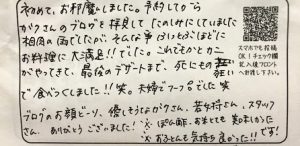 初めて、お邪魔しました。予約してから
がクさんのブログを拝見してたのしみにしていました
相肉の雨でしたが、そんな事ふっとぶほどに
お料理に大満足!!でした。これでもかとカニ
がやってきて、最後のデザートまで、死にもの狂い
で食べつくしました!!笑。夫婦でフーフーでした笑
ブログのお顔どーり、優しそうながクさん、若女将さん、スタッフ
さん、ありがとうございました! ぽん酢、お米とても美味しかった
おふとんも気持ち良かった!!です!
スマホでも投稿
OK!チェック欄
記入後フロント
へお渡し下さい。